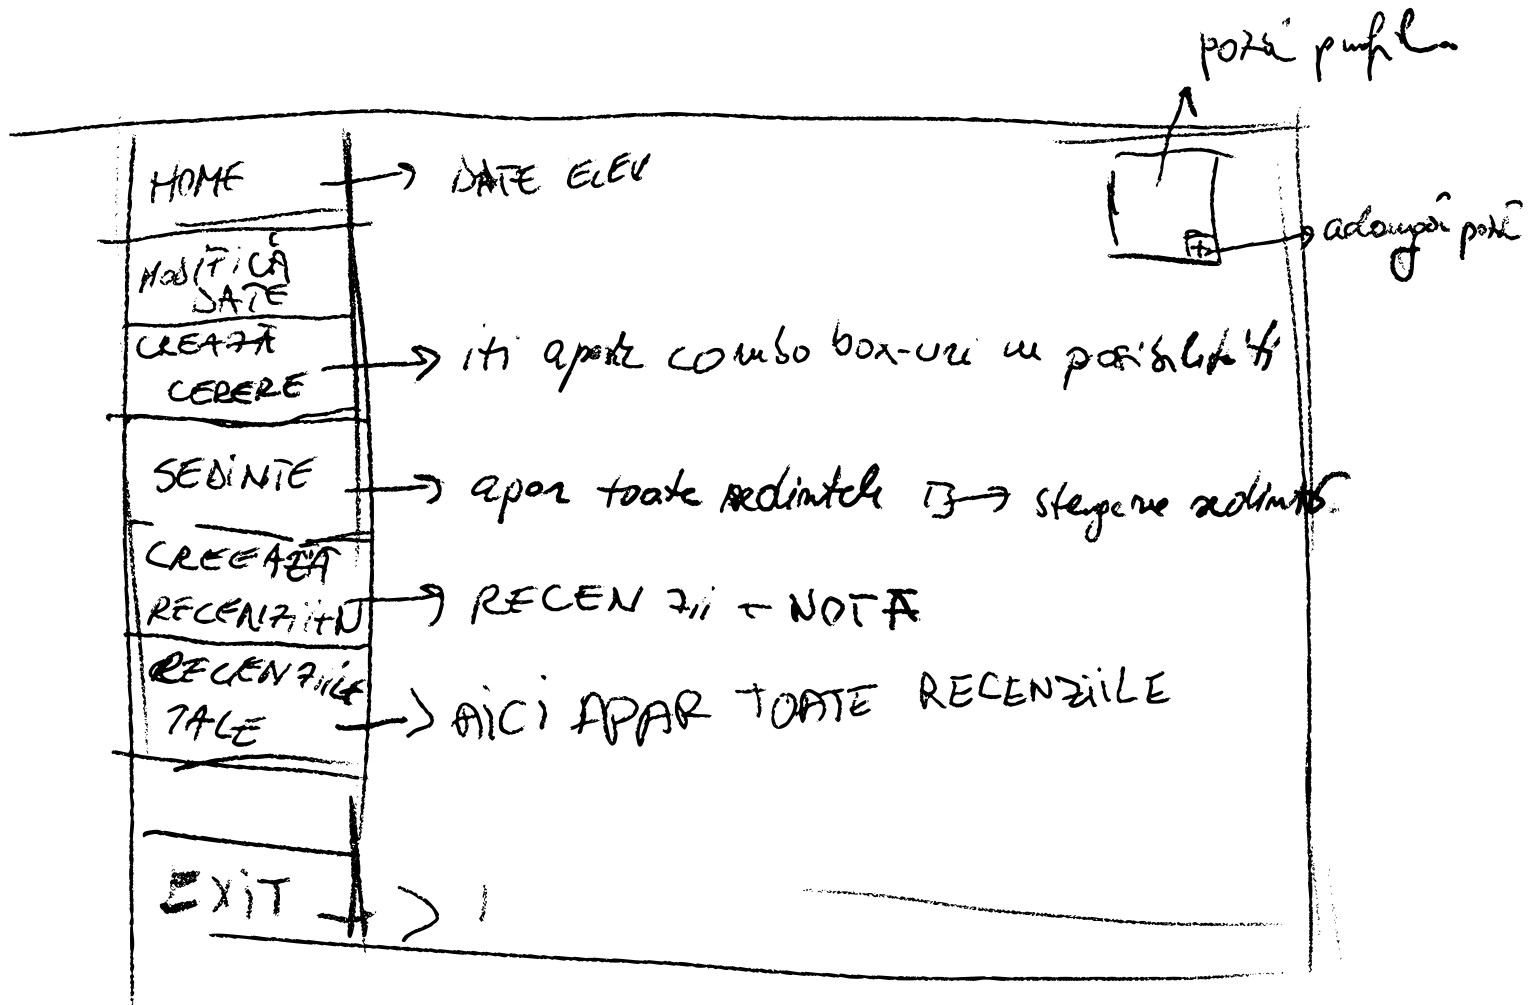 poză profil
HOME → DATE ELEV
adaugă poză
MODIFICĂ
DATE
CREAZĂ
CERERE → iti apar combo box-uri cu posibilități
SEDINTE → apar toate sedintele → stergere sedinta
CREEAZĂ
RECENZII+N → RECENZII + NOTĂ
RECENZIILE
TALE → AICI APAR TOATE RECENZIILE
EXIT →